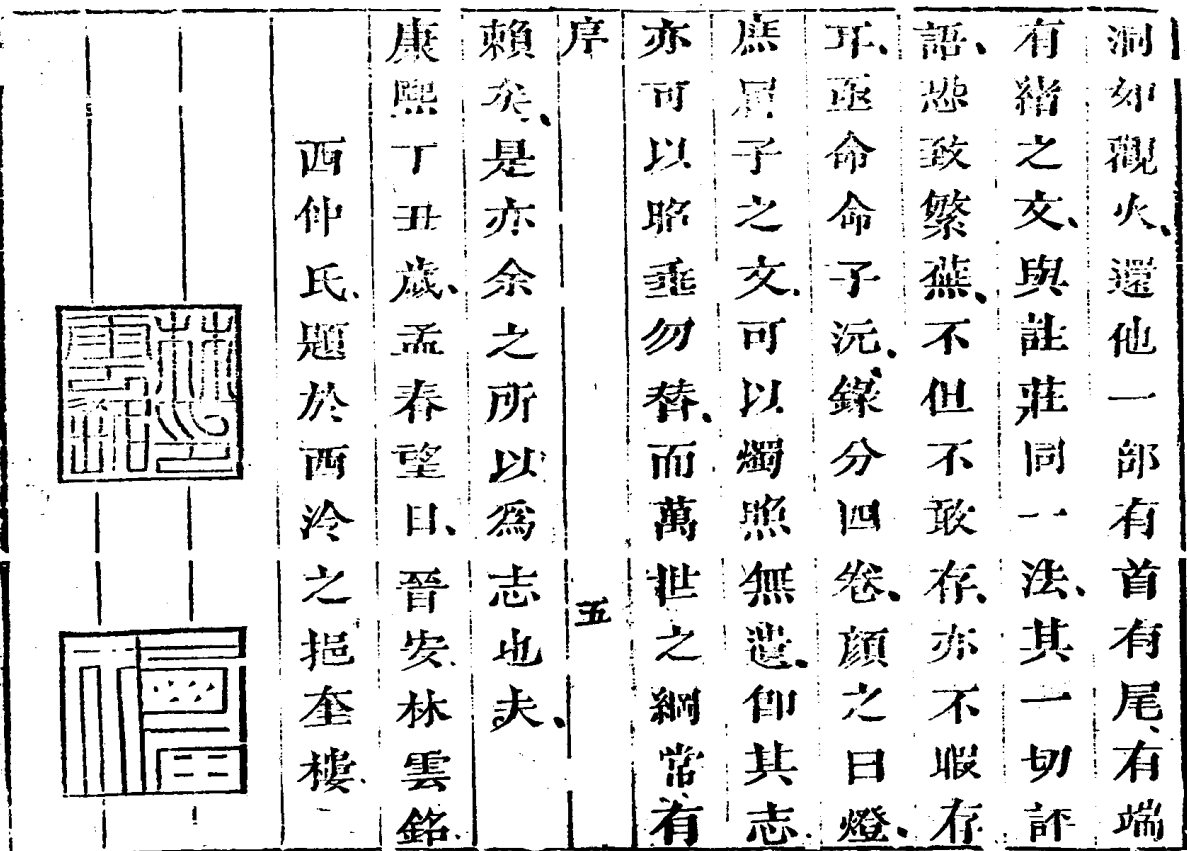 洞如觀火、還他一部有首有尾、有端
有緒之文、與註莊同一法、其一切評
語、恐致繁蕪、不但不敢存、亦不暇存
耳、亟命命子沅、錄分四卷、顏之曰燈、
庶屈子之文、可以燭照無遺、卽其志、
亦可以昭垂勿替、而萬世之綱常、有
序
五
賴矣、是亦余之所以爲志也夫、
康熙丁丑歲、孟春望日、晉安林雲銘
西仲氏題於西泠之挹奎樓